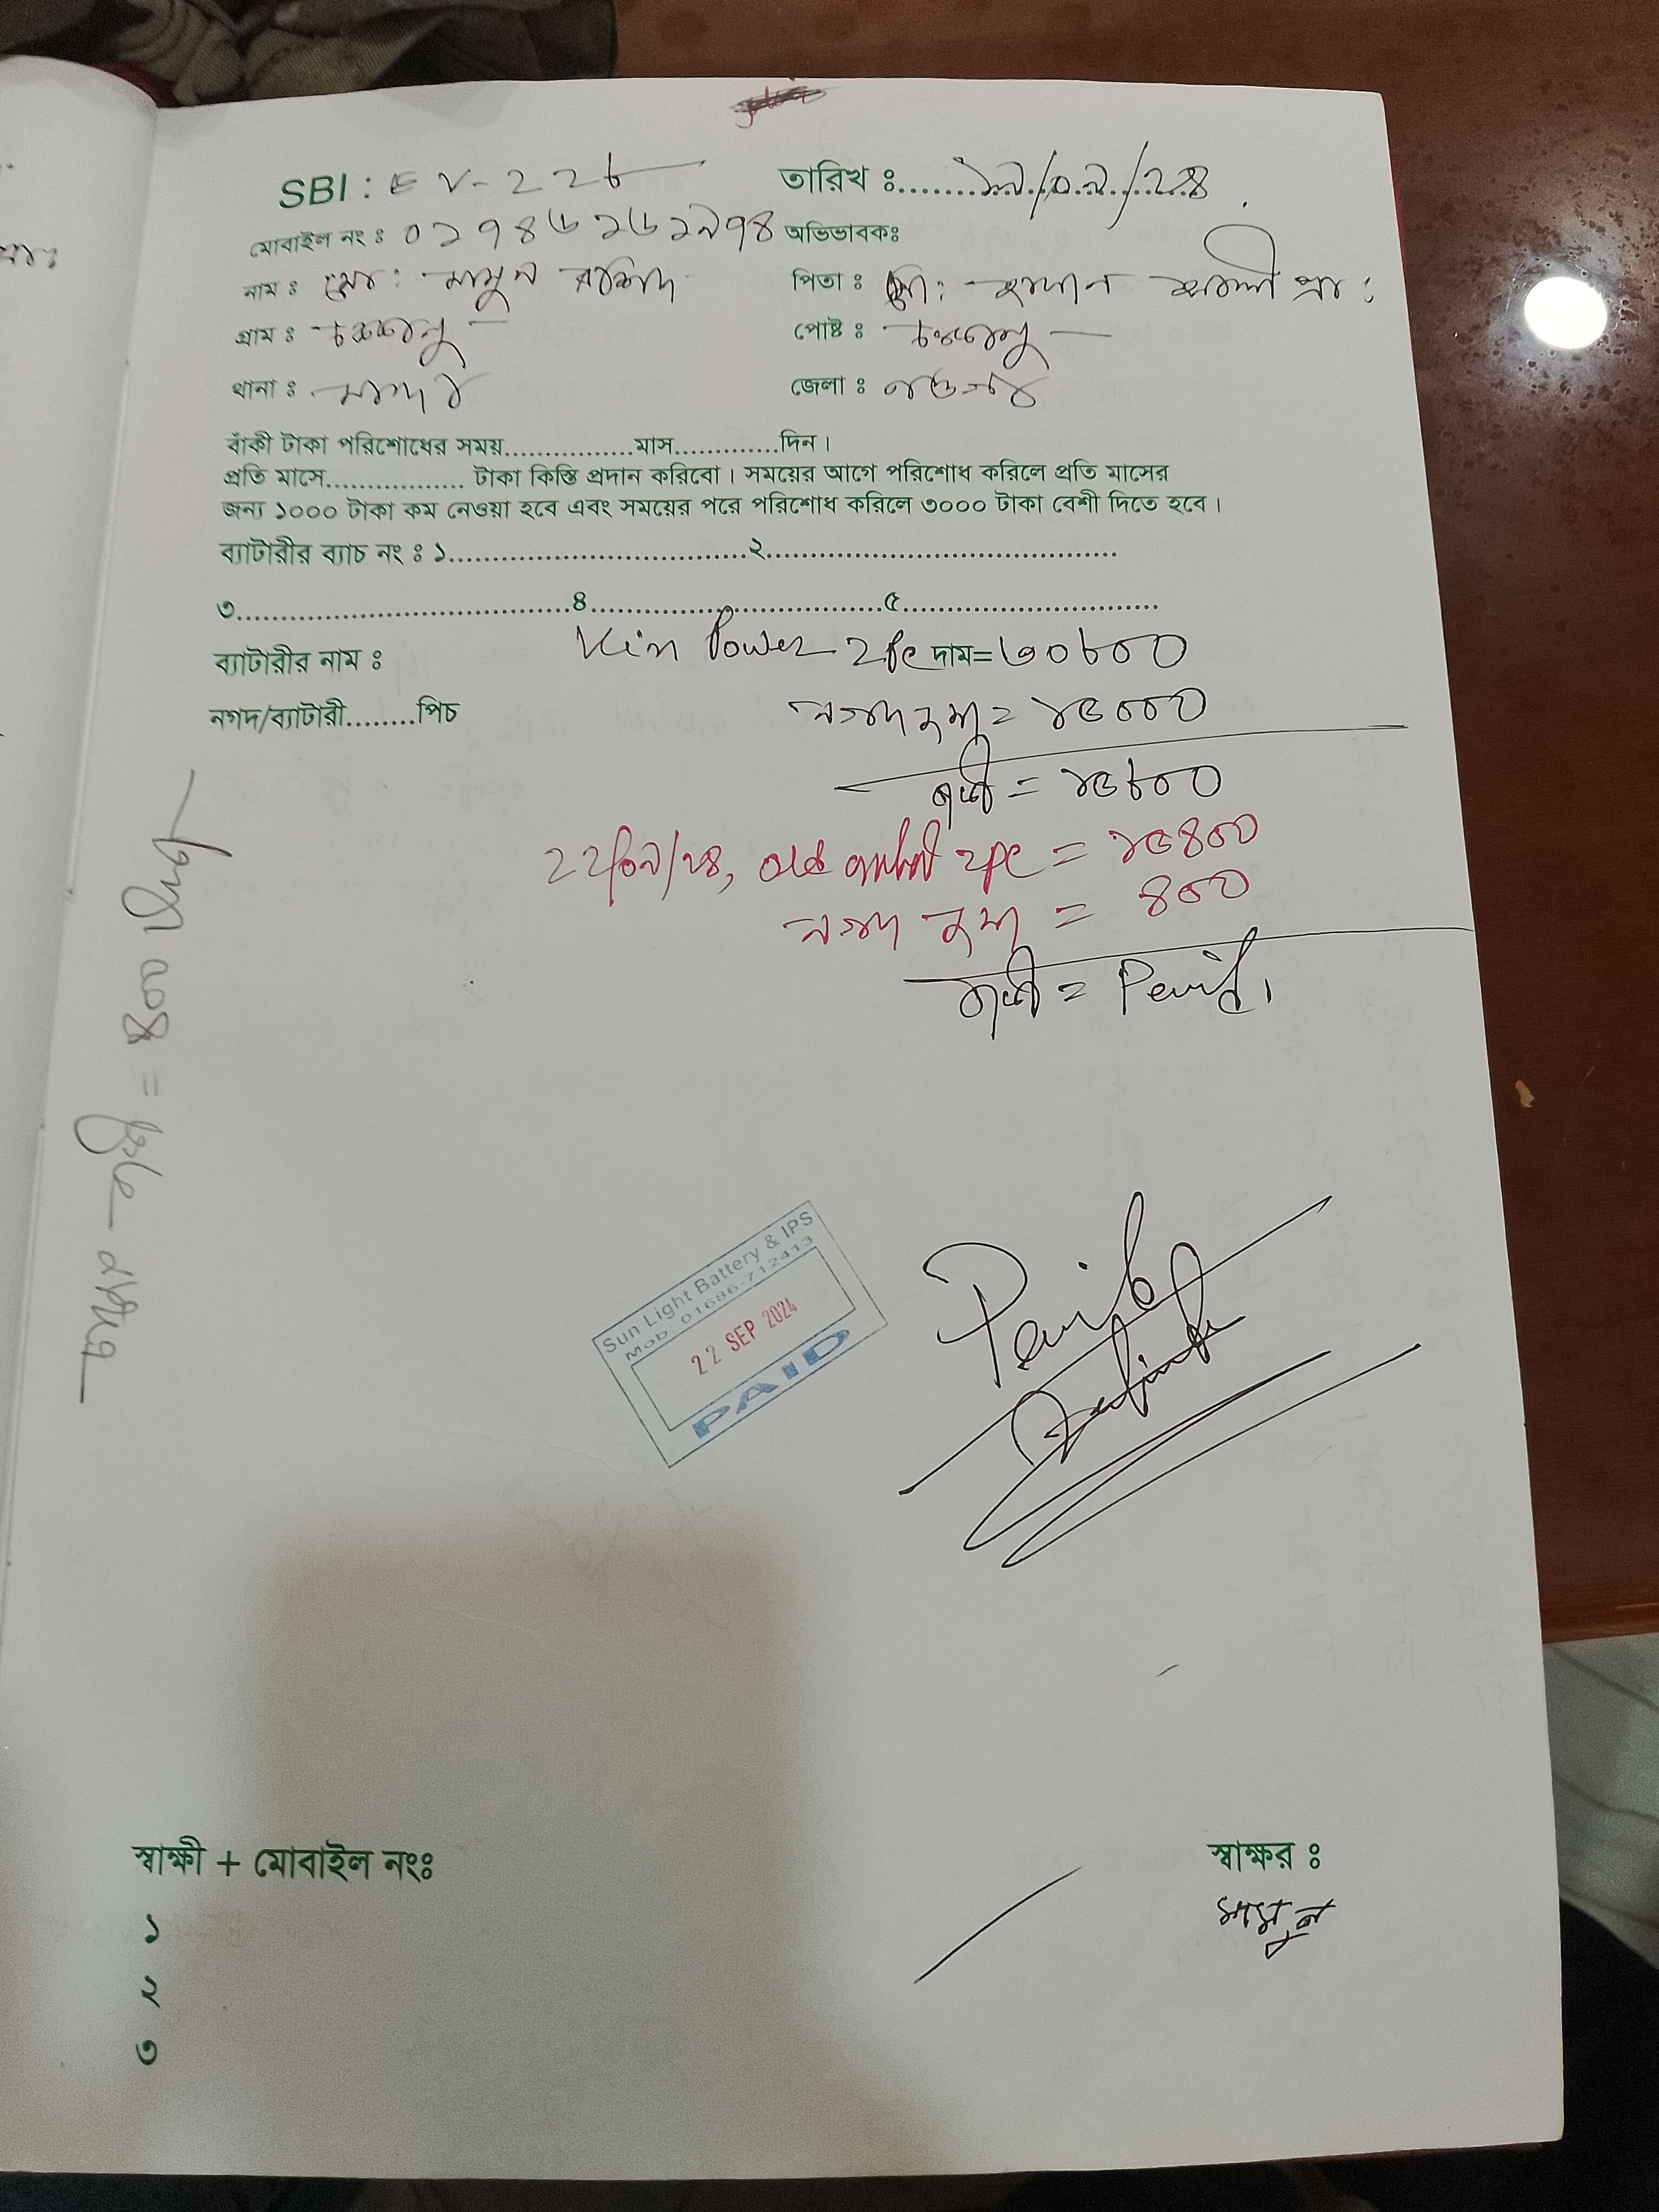 SBI : EV-২২৮
তারিখ ঃ........১৯/০৯/২৪
মোবাইল নং ঃ
অভিভাবকঃ
নাম ঃ মোঃ মামুন রশিদ
পিতা ঃ মোঃ
গ্রাম ঃ
পোষ্ট ঃ
থানা ঃ মান্দা
জেলা ঃ নওগাঁ
বাঁকী টাকা পরিশোধের সময়................মাস.............দিন।
প্রতি মাসে................. টাকা কিস্তি প্রদান করিবো। সময়ের আগে পরিশোধ করিলে প্রতি মাসের
জন্য ১০০০ টাকা কম নেওয়া হবে এবং সময়ের পরে পরিশোধ করিলে ৩০০০ টাকা বেশী দিতে হবে।
ব্যাটারীর ব্যাচ নং ঃ ১.....................................২...........................................
৩.........................................৪....................................৫...............................
ব্যাটারীর নাম ঃ Power 2Pc দাম=৩০৮০০
নগদ/ব্যাটারী........পিচ
নগদ জমা = ১৫০০০
বাকী = ১৫৮০০
২২/০৯/২৪, old 2pc = ১৫৪০০
নগদ জমা = ৪০০
বাকী = Paid
= ৪০০
Sun Light Battery & IPS
Mob: 01686-712413
22 SEP 2024
PAID
Paid
স্বাক্ষী + মোবাইল নংঃ
স্বাক্ষর ঃ
১
মামুন
২
৩